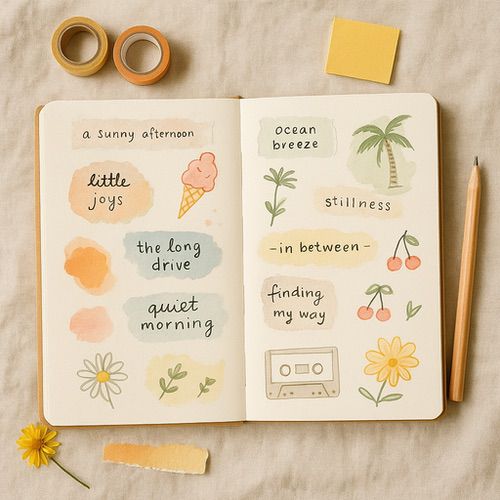 a sunny afternoon
little
joys
the long
drive
quiet
morning
ocean
breeze
stillness
-in between-
finding
my way